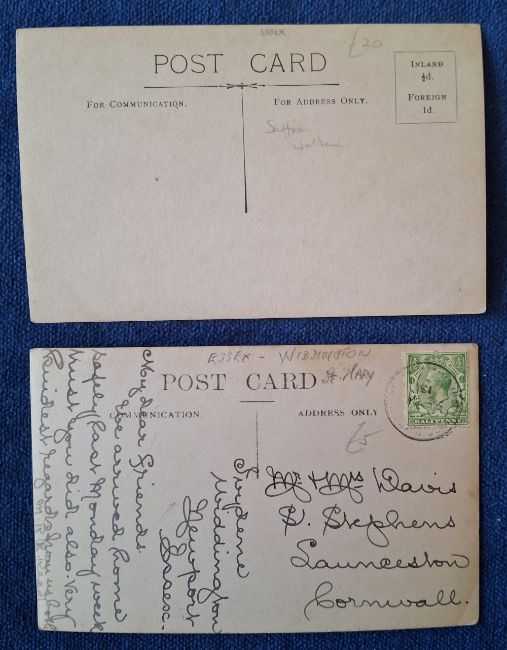 ESSEX
£20
POST CARD
INLAND
½d.
FOREIGN
1d.
FOR COMMUNICATION.
FOR ADDRESS ONLY.
Saffron
Walden
ESSEX - WIDDINGTON
St. MARY
POST CARD
COMMUNICATION.
ADDRESS ONLY
£5
HALFPENNY
Widdington
Newport
Essex.
My dear Friends.
We arrived Home
safely last Monday week
trust you did also. Very
Kindest regards from us both
Mr & Mrs Davis
S. Stephens
Launceston
Cornwall.